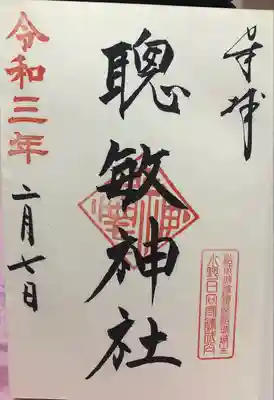 奉拝
聰敏神社
令和三年
二月七日